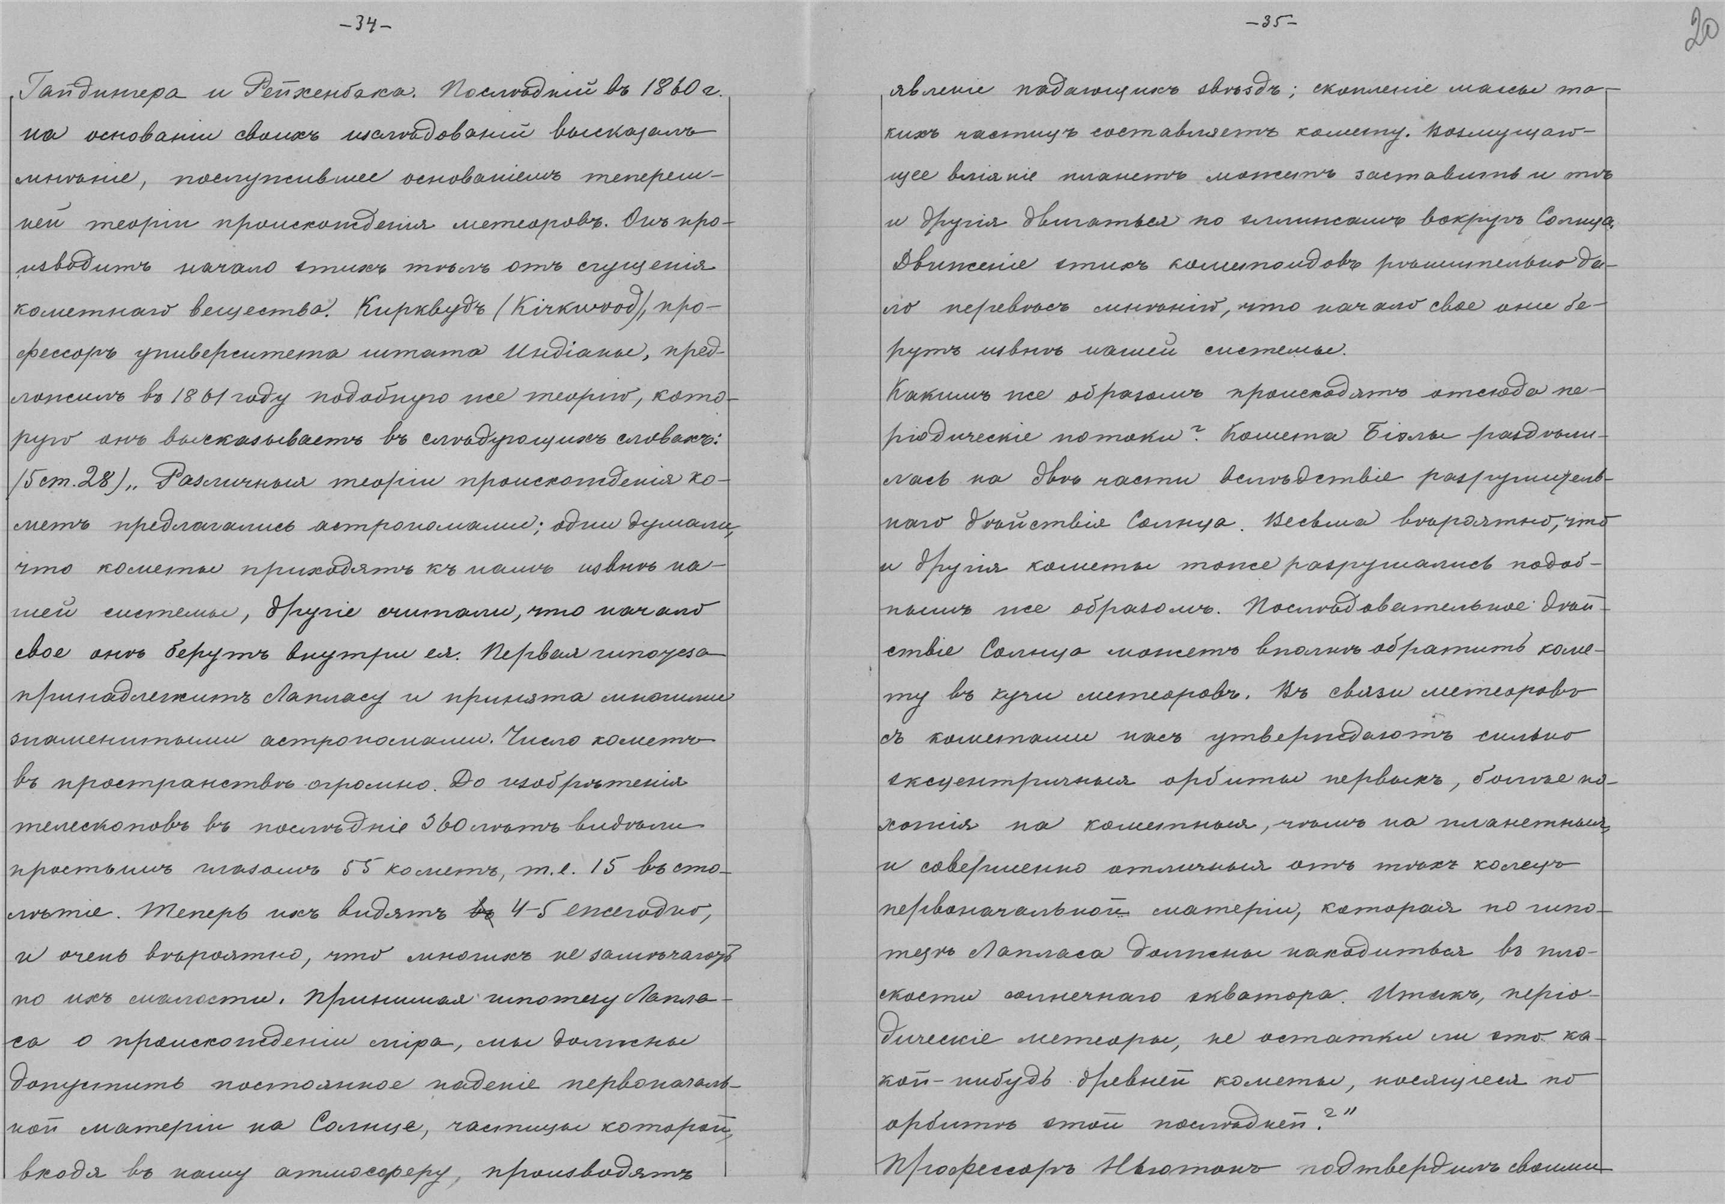 -34-
Гайдингера и Рейхенбака. Послѣдній въ 1860 г.
на основаніи своихъ изслѣдованій высказалъ
мнѣніе, послужившее основаніемъ тепереш-
ней теоріи происхожденія метеоровъ. Онъ про-
изводитъ начало этихъ тѣлъ отъ сгущенія
кометнаго вещества. Кирквудъ (Kirkwood), про-
фессоръ университета штата Индіаны, пред-
ложилъ въ 1861 году подобную же теорію, кото-
рую онъ высказываетъ въ слѣдующихъ словахъ:
(5 ст. 28) „Различныя теоріи происхожденія ко-
метъ предлагались астрономами; одни думали,
что кометы приходятъ къ намъ извнѣ на-
шей системы, другіе считали, что начало
свое онѣ берутъ внутри ея. Первая гипотеза
принадлежитъ Лапласу и принята многими
знаменитыми астрономами. Число кометъ
въ пространствѣ огромно. До изобрѣтенія
телескоповъ въ послѣдніе 360 лѣтъ видѣли
простымъ глазомъ 55 кометъ, т.е. 15 въ сто-
лѣтіе. Теперь ихъ видятъ 4-5 ежегодно,
и очень вѣроятно, что многихъ не замѣчаютъ
по ихъ малости. Принимая гипотезу Лапла-
са о происхожденіи міра, мы должны
допустить постоянное паденіе первоначаль-
ной матеріи на Солнце, частицы которой,
входя въ нашу атмосферу, производятъ
-35-
20
явленіе падающихъ звѣздъ; скопленіе массы та-
кихъ частицъ составляетъ комету. Возмущаю-
щее вліяніе планетъ можетъ заставить и тѣ
и другія двигаться по эллипсамъ вокругъ Солнца.
Движеніе этихъ кометоидовъ рѣшительно да-
ло перевѣсъ мнѣнію, что начало свое они бе-
рутъ извнѣ нашей системы.
Какимъ же образомъ происходятъ отсюда пе-
ріодическіе потоки? Комета Біэлы раздѣли-
лась на двѣ части вслѣдствіе разрушитель-
наго дѣйствія Солнца. Весьма вѣроятно, что
и другія кометы тоже разрушались подоб-
нымъ же образомъ. Послѣдовательное дѣй-
ствіе Солнца можетъ вполнѣ обратить коме-
ту въ кучи метеоровъ. Въ связи метеоровъ
съ кометами насъ утверждаютъ сильно
эксцентричныя орбиты первыхъ, болѣе по-
хожія на кометныя, чѣмъ на планетныя,
и совершенно отличныя отъ тѣхъ колецъ
первоначальной матеріи, которая по гипо-
тезѣ Лапласа должны находиться въ пло-
скости солнечнаго экватора. Итакъ, періо-
дическіе метеоры, не остатки ли это ка-
кой-нибудь древней кометы, носящіеся по
орбитѣ этой послѣдней?"
Профессоръ Ньютонъ подтвердилъ своими